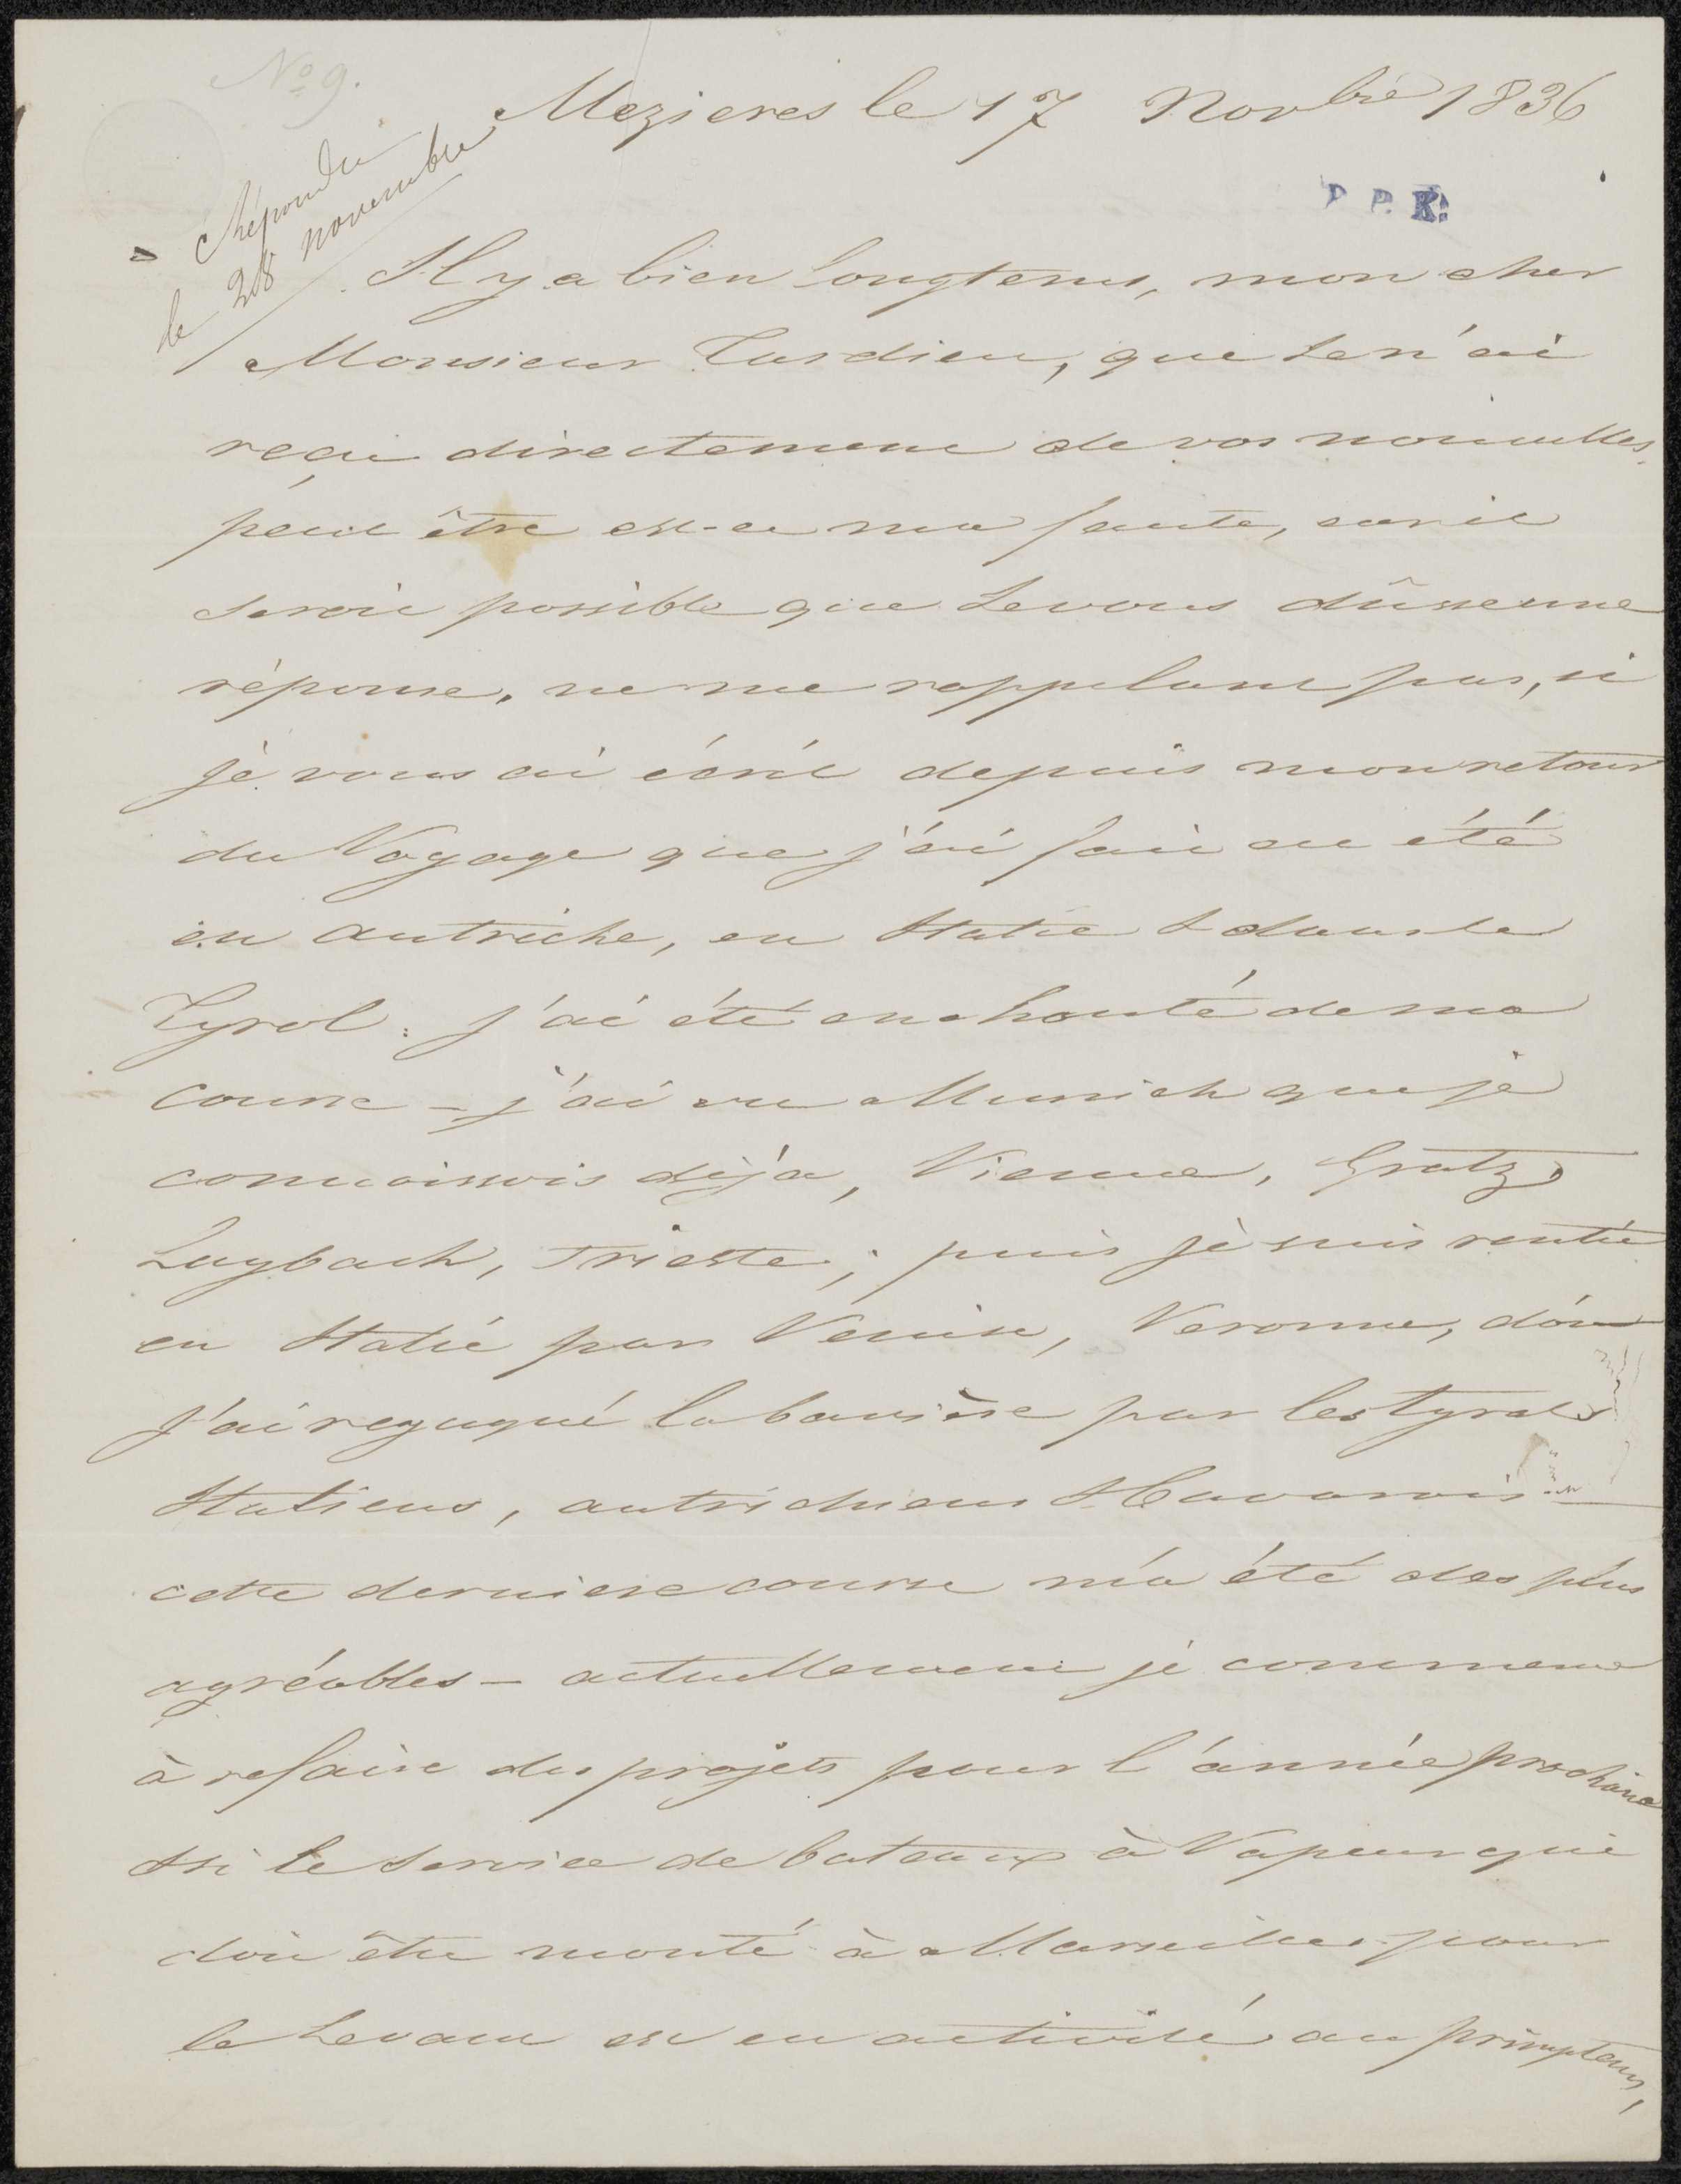 No 9.
Mezieres le 17 Novbre 1836
Répondu
le 28 novembre
P. P. K.
Il y a bien longtems, mon cher
Monsieur Tardieu, que Je n'ai
reçu directement de vos nouvelles,
peut être est-ce ma faute, car il
seroit possible que Je vous dûsse une
réponse, ne me rappelant pas, si
je vous ai écrit depuis mon retour
du Voyage que j'ai fait cet été
en autriche, en Italie & dans le
Tyrol: j'ai été enchanté de ma
course - j'ai vu Munich que je
connoissois déja, Vienne, Gratz,
Laybach, Trieste; puis je suis rentré
en Italie par Venise, Veronne, d'où
j'ai regagné la bavière par les tyrols
Italiens, autrichiens & bavarois
cette derniere course m'a été des plus
agréables - actuellement je commence
à refaire des projets pour l'année prochaine
& si le service de bateaux à Vapeur qui
doit être monté à Marseille pour
le Levant est en activité au primptems,